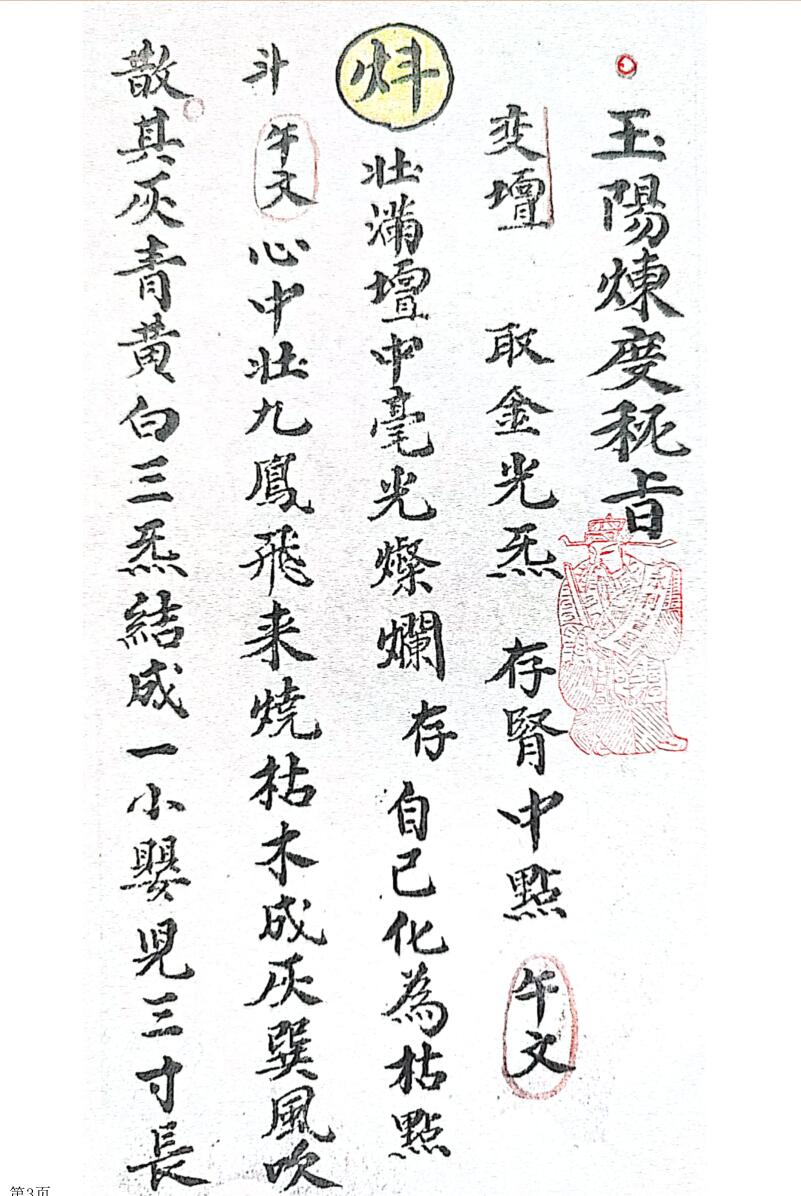 玉陽煉度秘旨
变壇　取金光炁　存腎中點　午文
炓　壮滿壇中毫光燦爛　存自己化為枯點
斗　午文　心中壮九鳳飛来燒枯木成灰巽風吹
散其灰青黃白三炁結成一小嬰児三寸長
第3页